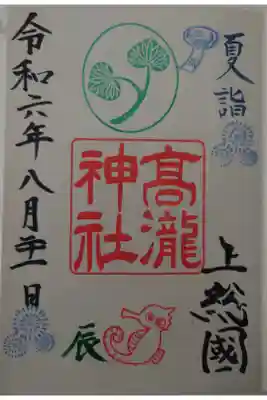 夏詣
上総國
髙瀧
神社
辰
令和六年八月二十一日